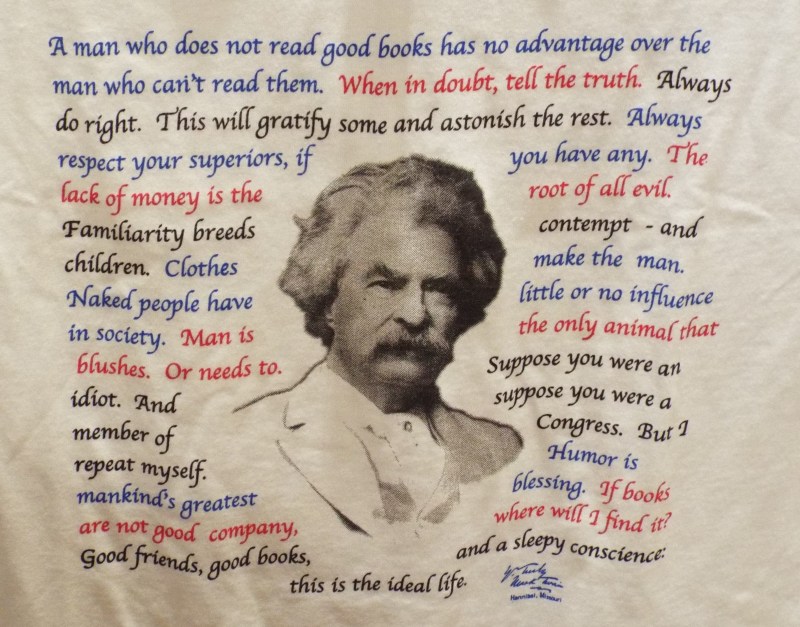 A man who does not read good books has no advantage over the
man who can't read them. When in doubt, tell the truth. Always
do right. This will gratify some and astonish the rest. Always
respect your superiors, if you have any. The
lack of money is the root of all evil.
Familiarity breeds contempt - and
children. Clothes make the man.
Naked people have little or no influence
in society. Man is the only animal that
blushes. Or needs to. Suppose you were an
idiot. And suppose you were a
member of Congress. But I
repeat myself. Humor is
mankind's greatest blessing. If books
are not good company, where will I find it?
Good friends, good books, and a sleepy conscience:
this is the ideal life.
Yrs Truly
Mark Twain
Hannibal, Missouri